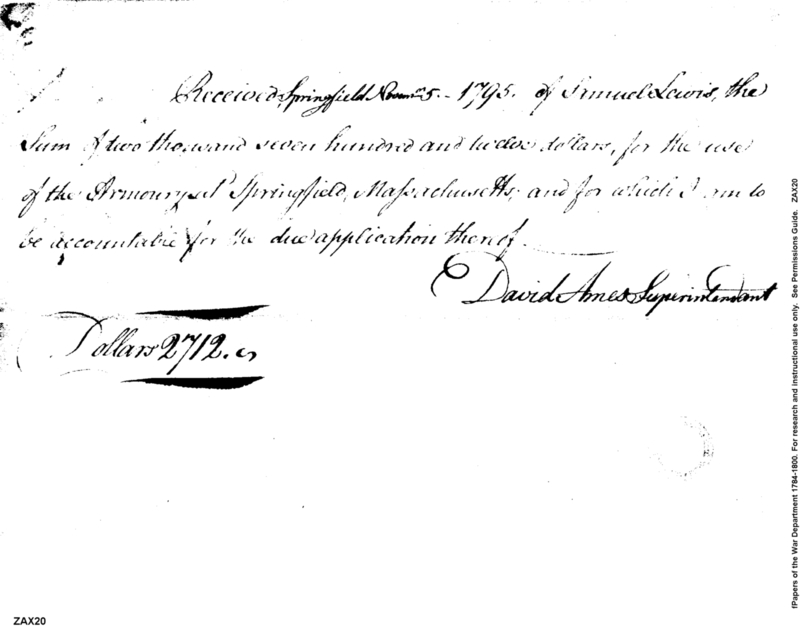 Received Springfield Novemr 5. - 1795. of Samuel Lewis, the
Sum of two thousand seven hundred and twelve dollars, for the use
of the Armoury at Springfield, Massachusetts, and for which I am to
be accountable for the due application thereof.
David Ames Superintendant
Dollars 2712.
ZAX20
fPapers of the War Department 1784-1800. For research and instructional use only. See Permissions Guide. ZAX20